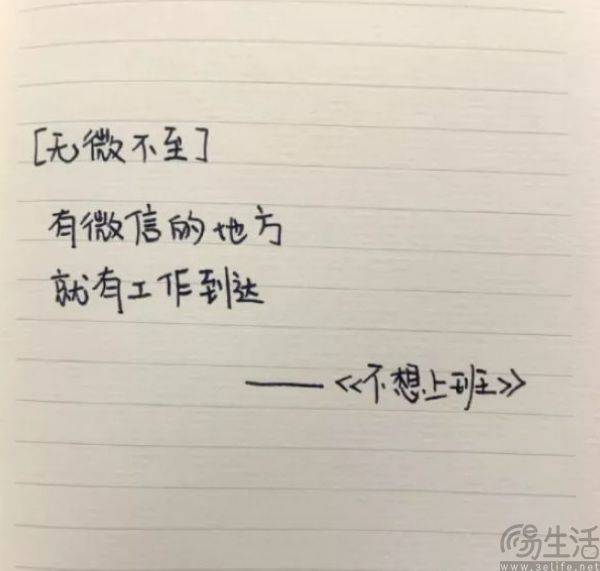 [无微不至]
有微信的地方
就有工作到达
——《不想上班》
易生活
www.3elife.net